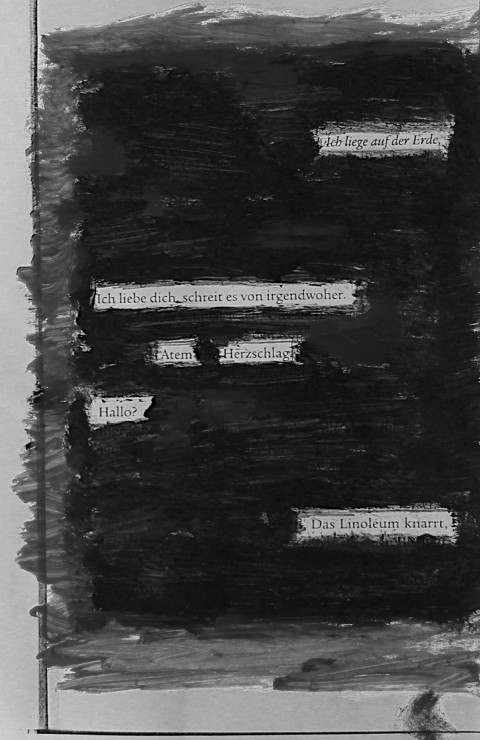 Ich liege auf der Erde,
Ich liebe dich, schreit es von irgendwoher.
Atem Herzschlag
Hallo?
Das Linoleum knarrt,